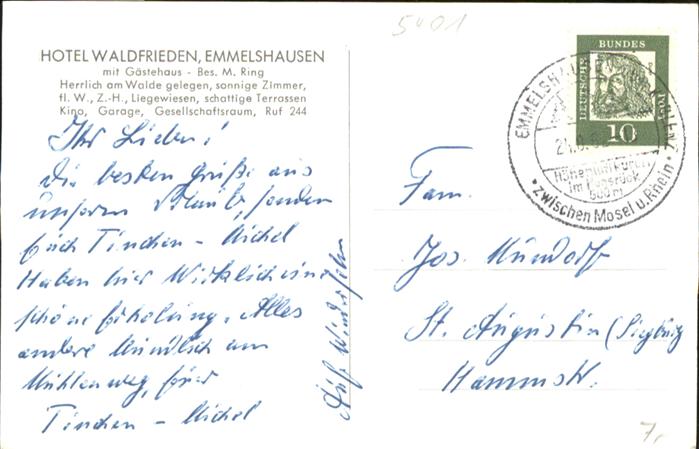 5401
HOTEL WALDFRIEDEN, EMMELSHAUSEN
mit Gästehaus - Bes. M. Ring
Herrlich am Walde gelegen, sonnige Zimmer,
fl. W., Z.-H., Liegewiesen, schattige Terrassen
Kino, Garage, Gesellschaftsraum, Ruf 244
Ihr Lieben!
Die besten Grüße aus
unserm Urlaub, senden
Euch Tinchen - Michel
Haben hier Wirklich eine
schöne Erholung. Alles
andere Mündlich am
Mühlenweg, Eure
Tinchen - Michel
Auf Wiedersehn
DEUTSCHE BUNDESPOST
10
EMMELSHAUSEN
Höhenluftkurort
im Hunsrück
500 m
• Zwischen Mosel u. Rhein •
Fam.
Jos. Mundorf
St. Augustin (Siegburg
Hammstr.
7,